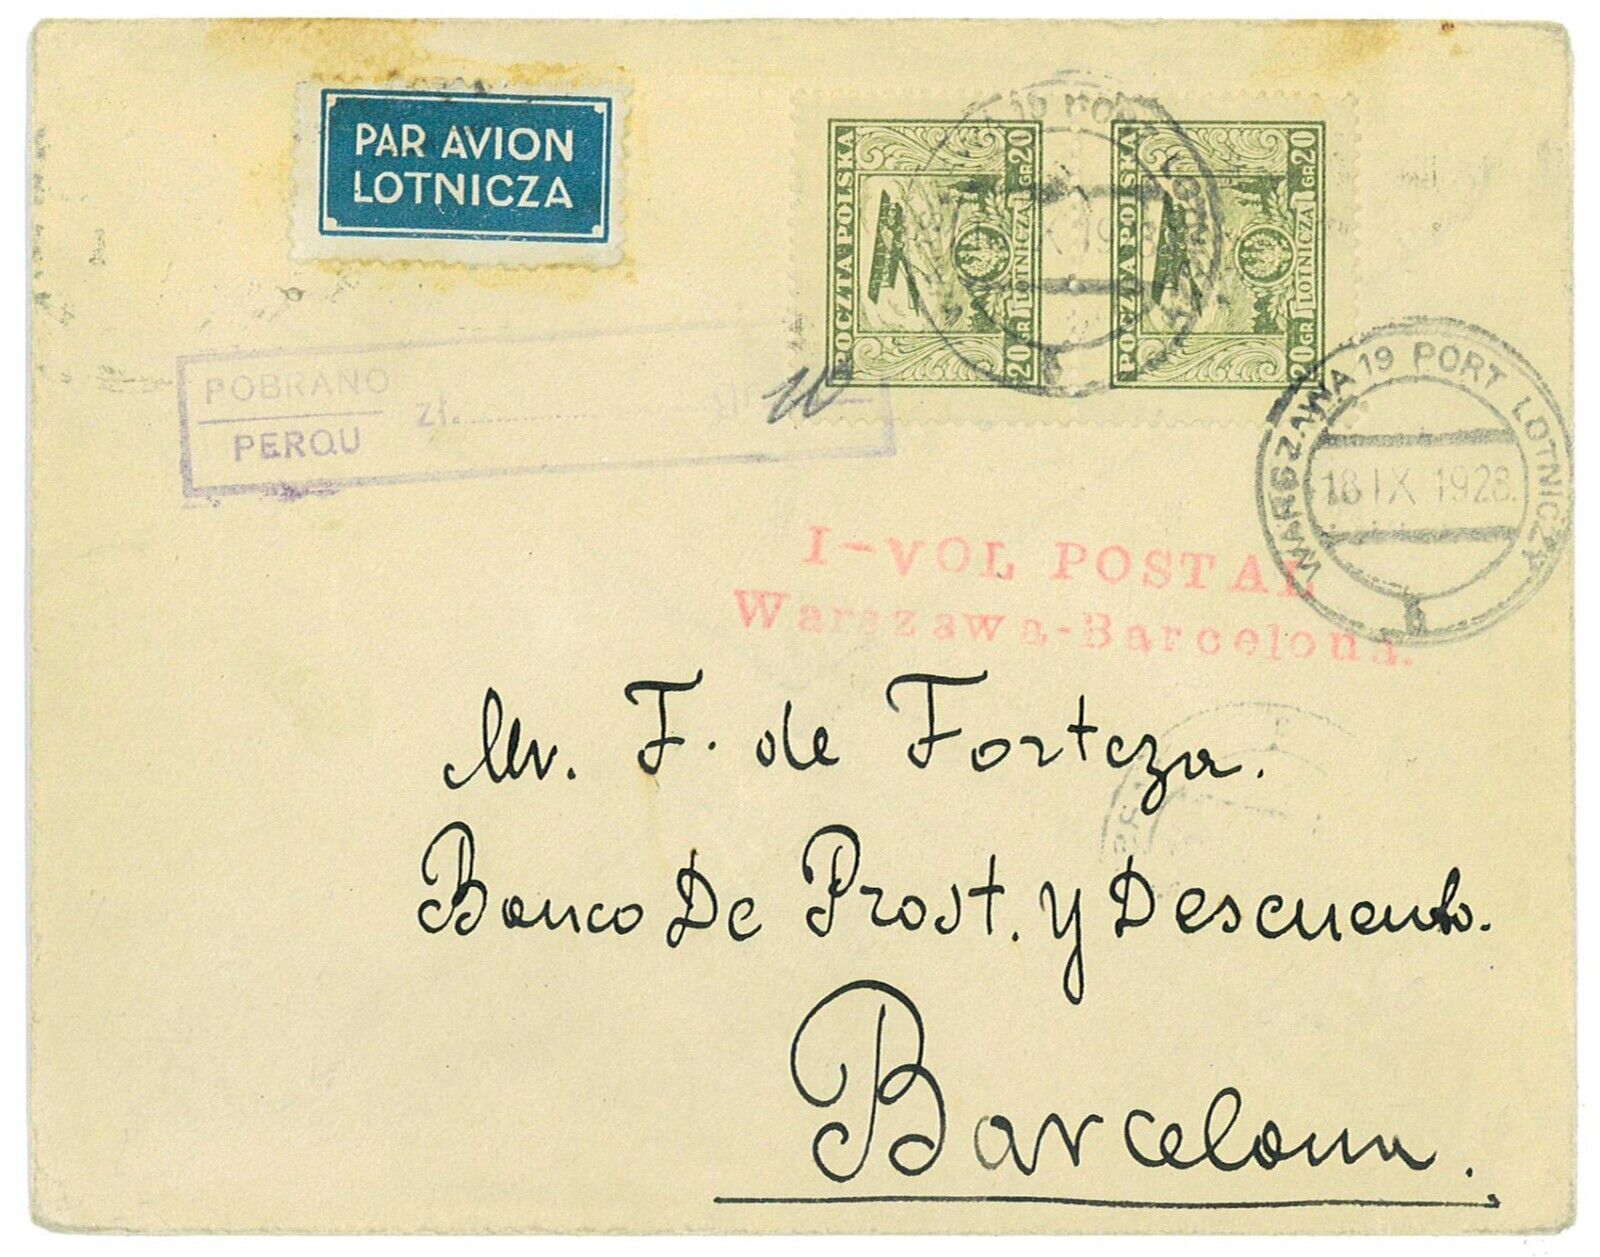 PAR AVION
LOTNICZA
POCZTA POLSKA
20 GR LOTNICZA GR 20
POCZTA POLSKA
20 GR LOTNICZA GR 20
POBRANO
PERÇU
zł.
WARSZAWA 19 PORT LOTNICZY
18 IX 1928.
b
I-VOL POSTAL
Warszawa-Barcelona.
Mr. F. de Fortcza.
Banco De Prost. y Descuento.
Barcelona.